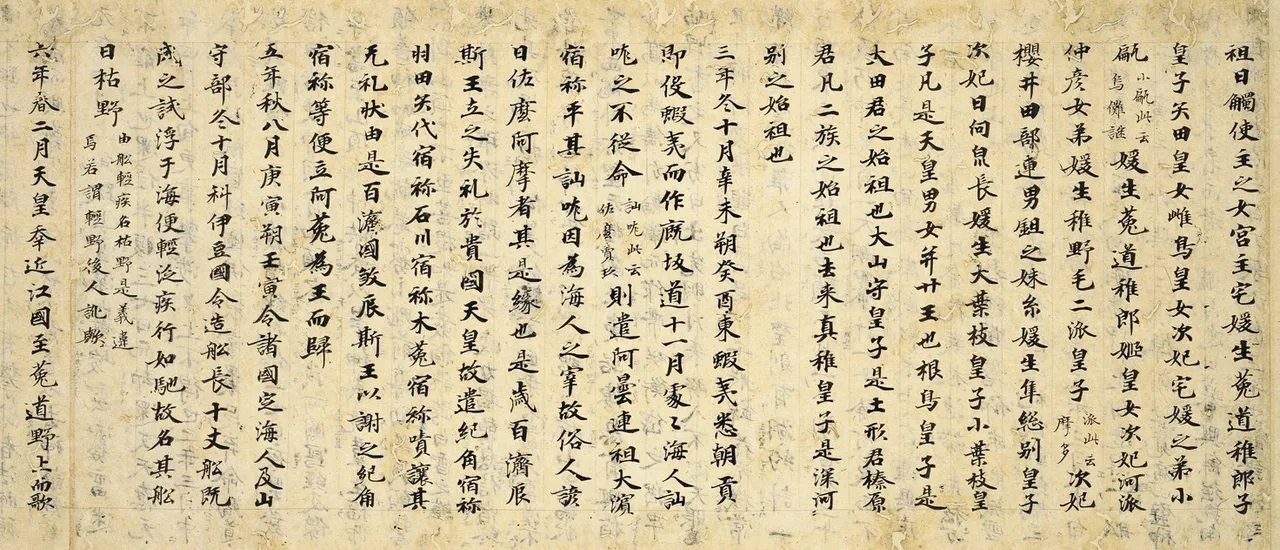 祖日觸使主之女宮主宅媛生菟道稚郎子
皇子矢田皇女雌鳥皇女次妃宅媛之弟小
甂小甂此云烏儺謎媛生菟道稚郎姬皇女次妃河派
仲彥女弟媛生稚野毛二派皇子派此云摩多次妃
櫻井田部連男鉏之妹糸媛生隼総別皇子
次妃日向泉長媛生大葉枝皇子小葉枝皇
子凡是天皇男女并廿王也根鳥皇子是
太田君之始祖也大山守皇子是土形君榛原
君凡二族之始祖也去来真稚皇子是深河
別之始祖也
三年冬十月辛未朔癸酉東蝦夷悉朝貢
即伇蝦夷而作廐坂道十一月處〻海人訕
哤之不従命訕哤此云佐麼賣玖則遣阿曇連祖大濱
宿祢平其訕哤因為海人之宰故俗人諺
日佐麼阿摩者其是緣也是歳百濟辰
斯王立之失礼於貴國天皇故遣紀角宿祢
羽田矢代宿祢石川宿祢木菟宿祢嘖讓其
无礼状由是百濟國煞辰斯王以謝之紀角
宿祢等便立阿菟為王而歸
五年秋八月庚寅朔壬寅令諸國定海人及山
守部冬十月科伊豆國令造舩長十丈舩既
成之試浮于海便輕泛疾行如馳故名其舩
日枯野由舩輕疾名枯野是義違焉若謂輕野後人訛歟
六年春二月天皇幸近江國至菟道野上而歌